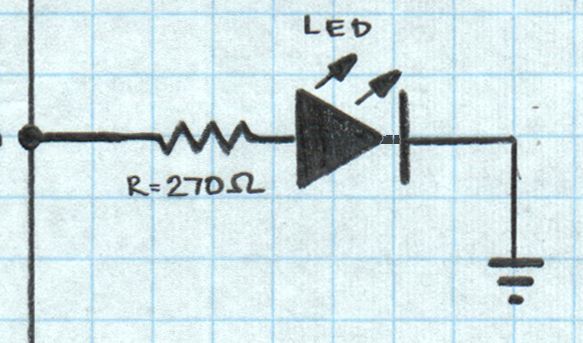 LED
R=270Ω